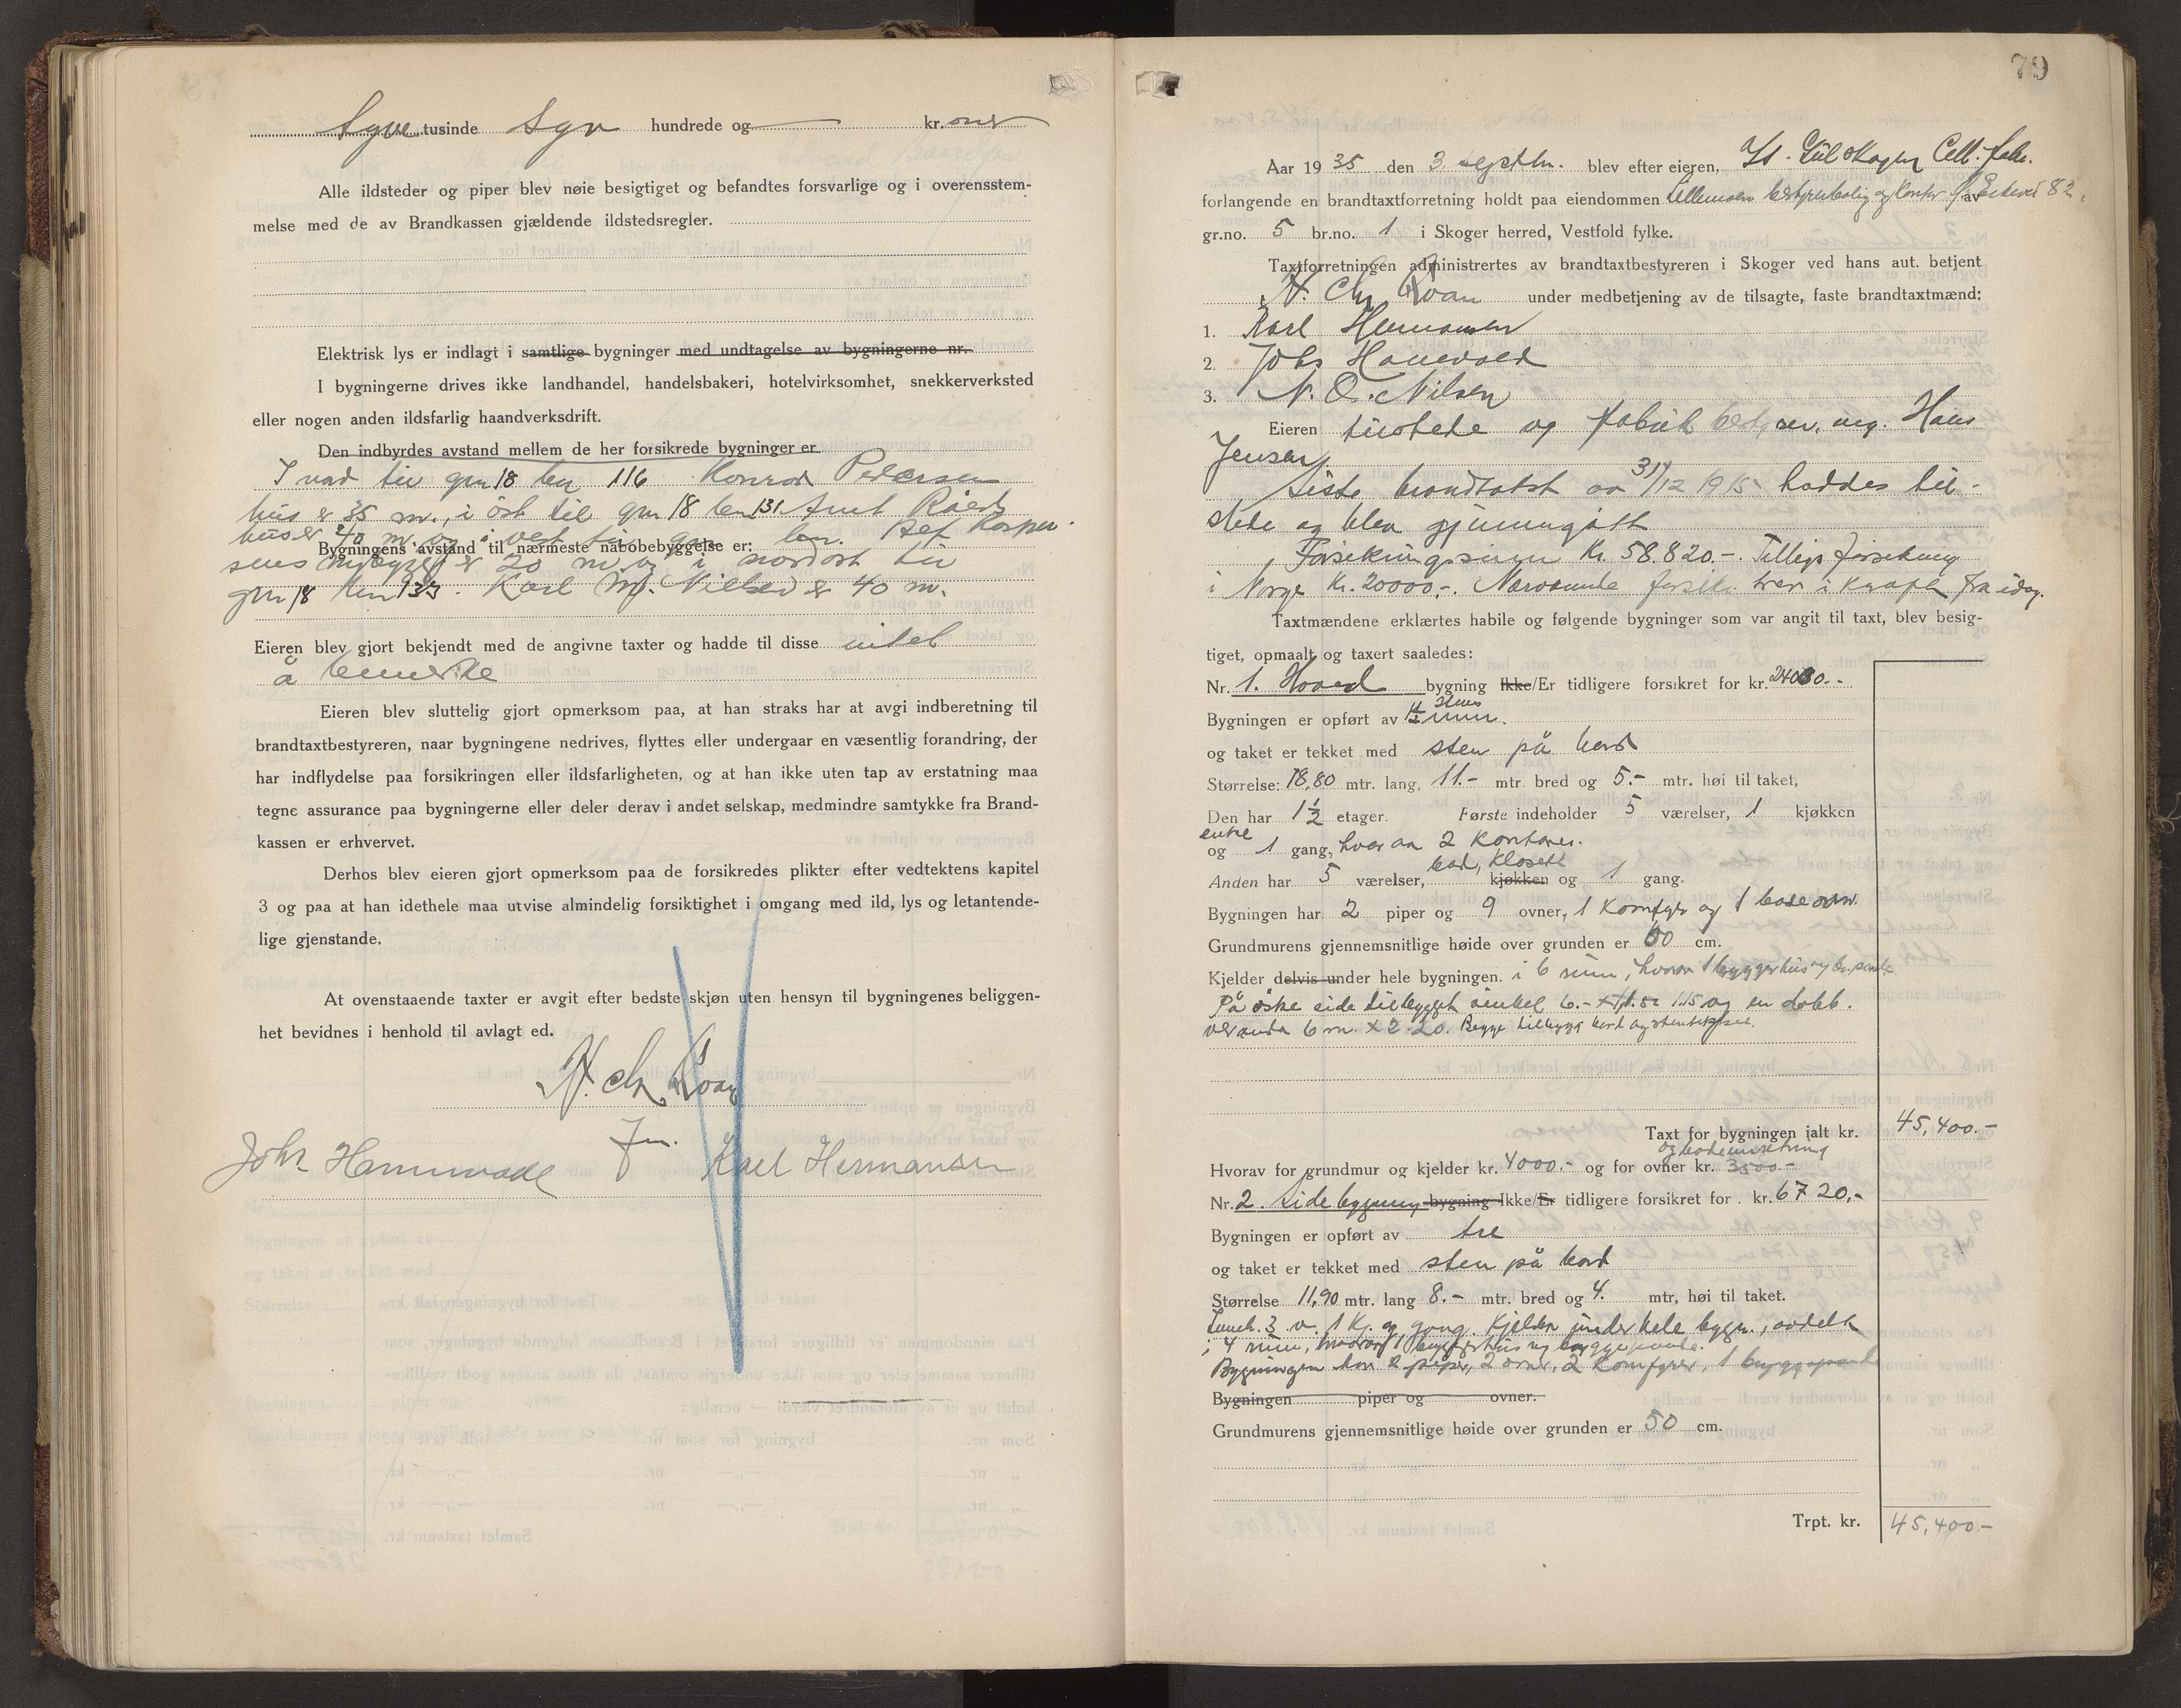 tyve tusinde syv hundrede og — kr. oner
Alle ildsteder og piper blev nøie besigtiget og befandtes forsvarlige og i overensstem-
melse med de av Brandkassen gjældende ildstedsregler.
Elektrisk lys er indlagt i samtlige bygninger med undtagelse av bygningerne nr.
I bygningerne drives ikke landhandel, handelsbakeri, hotelvirksomhet, snekkerverksted
eller nogen anden ildsfarlig haandverksdrift.
Den indbyrdes avstand mellem de her forsikrede bygninger er
I nord til grn 18 brn 116 Konrad Pedersen
hus er 35 m., i öst til grn 18 brn 131
hus er 40 m. og i vest til grn brn.
Bygningens avstand til nærmeste nabobebyggelse er:
sens er 20 m. og i nordost til
grn 18 brn 133. Karl M. Nilsen er 40 m.
Eieren blev gjort bekjendt med de angivne taxter og hadde til disse intet
å bemerke
Eieren blev sluttelig gjort opmerksom paa, at han straks har at avgi indberetning til
brandtaxtbestyreren, naar bygningene nedrives, flyttes eller undergaar en væsentlig forandring, der
har indflydelse paa forsikringen eller ildsfarligheten, og at han ikke uten tap av erstatning maa
tegne assurance paa bygningerne eller deler derav i andet selskap, medmindre samtykke fra Brand-
kassen er erhvervet.
Derhos blev eieren gjort opmerksom paa de forsikredes plikter efter vedtektens kapitel
3 og paa at han idethele maa utvise almindelig forsiktighet i omgang med ild, lys og letantende-
lige gjenstande.
At ovenstaaende taxter er avgit efter bedste skjøn uten hensyn til bygningenes beliggen-
het bevidnes i henhold til avlagt ed.
N. Chr. Roan
fm.
Johs Hannevold Karl Hermansen
79
Aar 1935 den 3 septbr. blev efter eieren, A/S Gulskogen Cell. fabr.
forlangende en brandtaxtforretning holdt paa eiendommen bestyrerbolig og av 82,
gr.no. 5 br.no. 1 i Skoger herred, Vestfold fylke.
Taxtforretningen administrertes av brandtaxtbestyreren i Skoger ved hans aut. betjent
N. Chr. Roan under medbetjening av de tilsagte, faste brandtaxtmænd:
1. Karl Hermansen
2. Johs Hannevold
3. N. O. Nilsen
Eieren tilstede og fabrik bestyrer, ing. Hans
Jensen
Siste brandtakst av 31/12 1915 haddes til-
stede og blev gjennemgått
Forsikringssum Kr. 58.820.-. Tillegsforsikring
i Norge Kr. 20000,-. Nærværende forsik. trer i kraft fra idag.
Taxtmændene erklærtes habile og følgende bygninger som var angit til taxt, blev besig-
tiget, opmaalt og taxert saaledes:
Nr. 1. Hoved bygning Ikke/Er tidligere forsikret for kr. 24080.-
Bygningen er opført av
og taket er tekket med sten på bord
Størrelse: 18,80 mtr. lang, 11.- mtr. bred og 5.- mtr. høi til taket,
Den har 1½ etager. Første indeholder 5 værelser, 1 kjøkken
entre
og 1 gang, hvorav 2 kontorer.
bad, klosett
Anden har 5 værelser, kjøkken og 1 gang.
Bygningen har 2 piper og 9 ovner, 1 Komfyr og 1 badeovn.
Grundmurens gjennemsnitlige høide over grunden er 60 cm.
Kjelder delvis under hele bygningen. i 6 rum, hvorav 1 bryggerhus og br.panne
På östre side tilbygget vinkel og en dobb.
veranda 6 m. x 2.20. Begge tilbygg bord og
Taxt for bygningen ialt kr. 45,400.-
og badeinnretning
Hvorav for grundmur og kjelder kr. 4000.- og for ovner kr. 3500.-
Nr. 2. sidebygning bygning Ikke/Er tidligere forsikret for . kr. 6720,-
Bygningen er opført av tre
og taket er tekket med sten på bord
Størrelse 11,90 mtr. lang 8.- mtr. bred og 4. mtr, høi til taket.
Inneh. 3 v. 1 Kj. og gang. Kjelder under hele bygn., avdelt
i 4 rum, hvorav 1 bryggerhus og bryggepanne.
Bygningen har 2 piper, 2 ovner, 2 komfyrer, 1 bryggepanne
Bygningen piper og ovner.
Grundmurens gjennemsnitlige høide over grunden er 50 cm.
Trpt. kr. 45,400.-